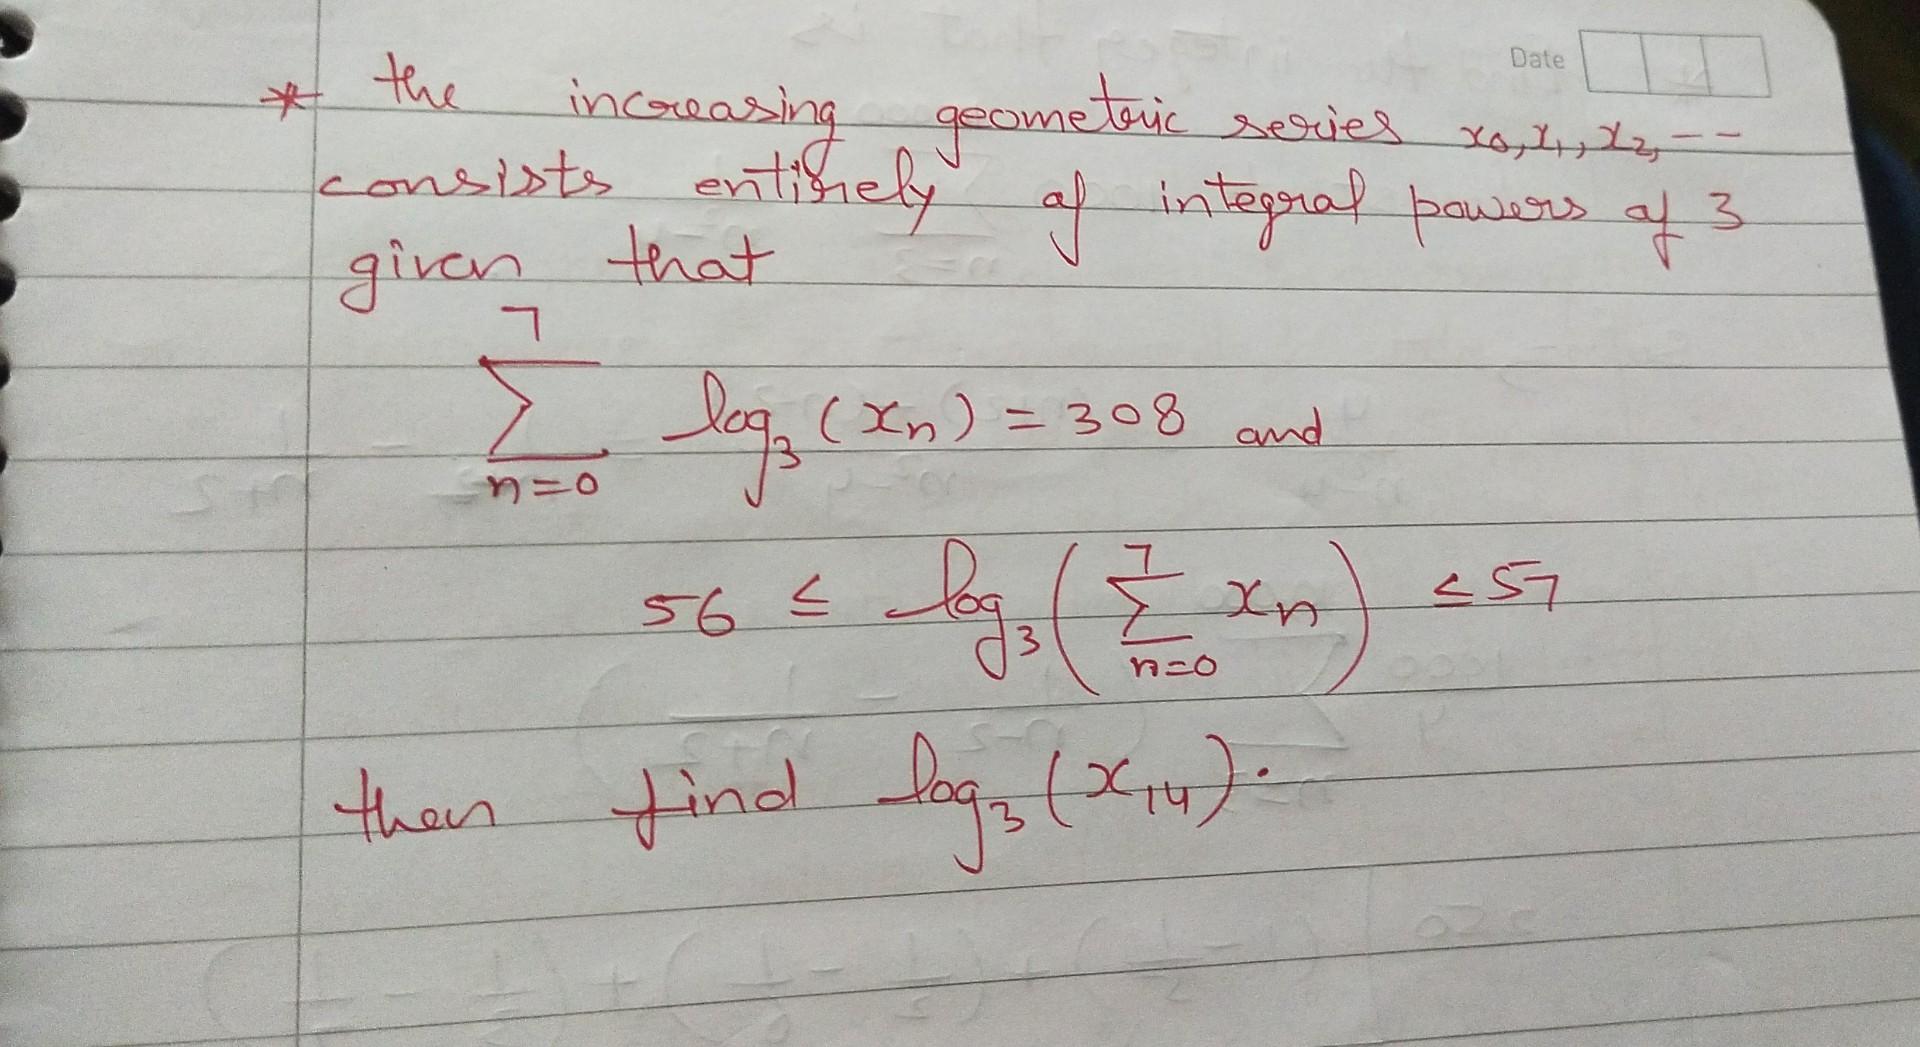 Date
* the increasing geometric series x₀, x₁, x₂, --
consists entirely of integral powers of 3
given that
7
∑ log₃ (xₙ) = 308 and
n=0
56 ≤ log₃ ( ∑ xₙ ) ≤ 57
7
n=0
then find log₃ (x₁₄).